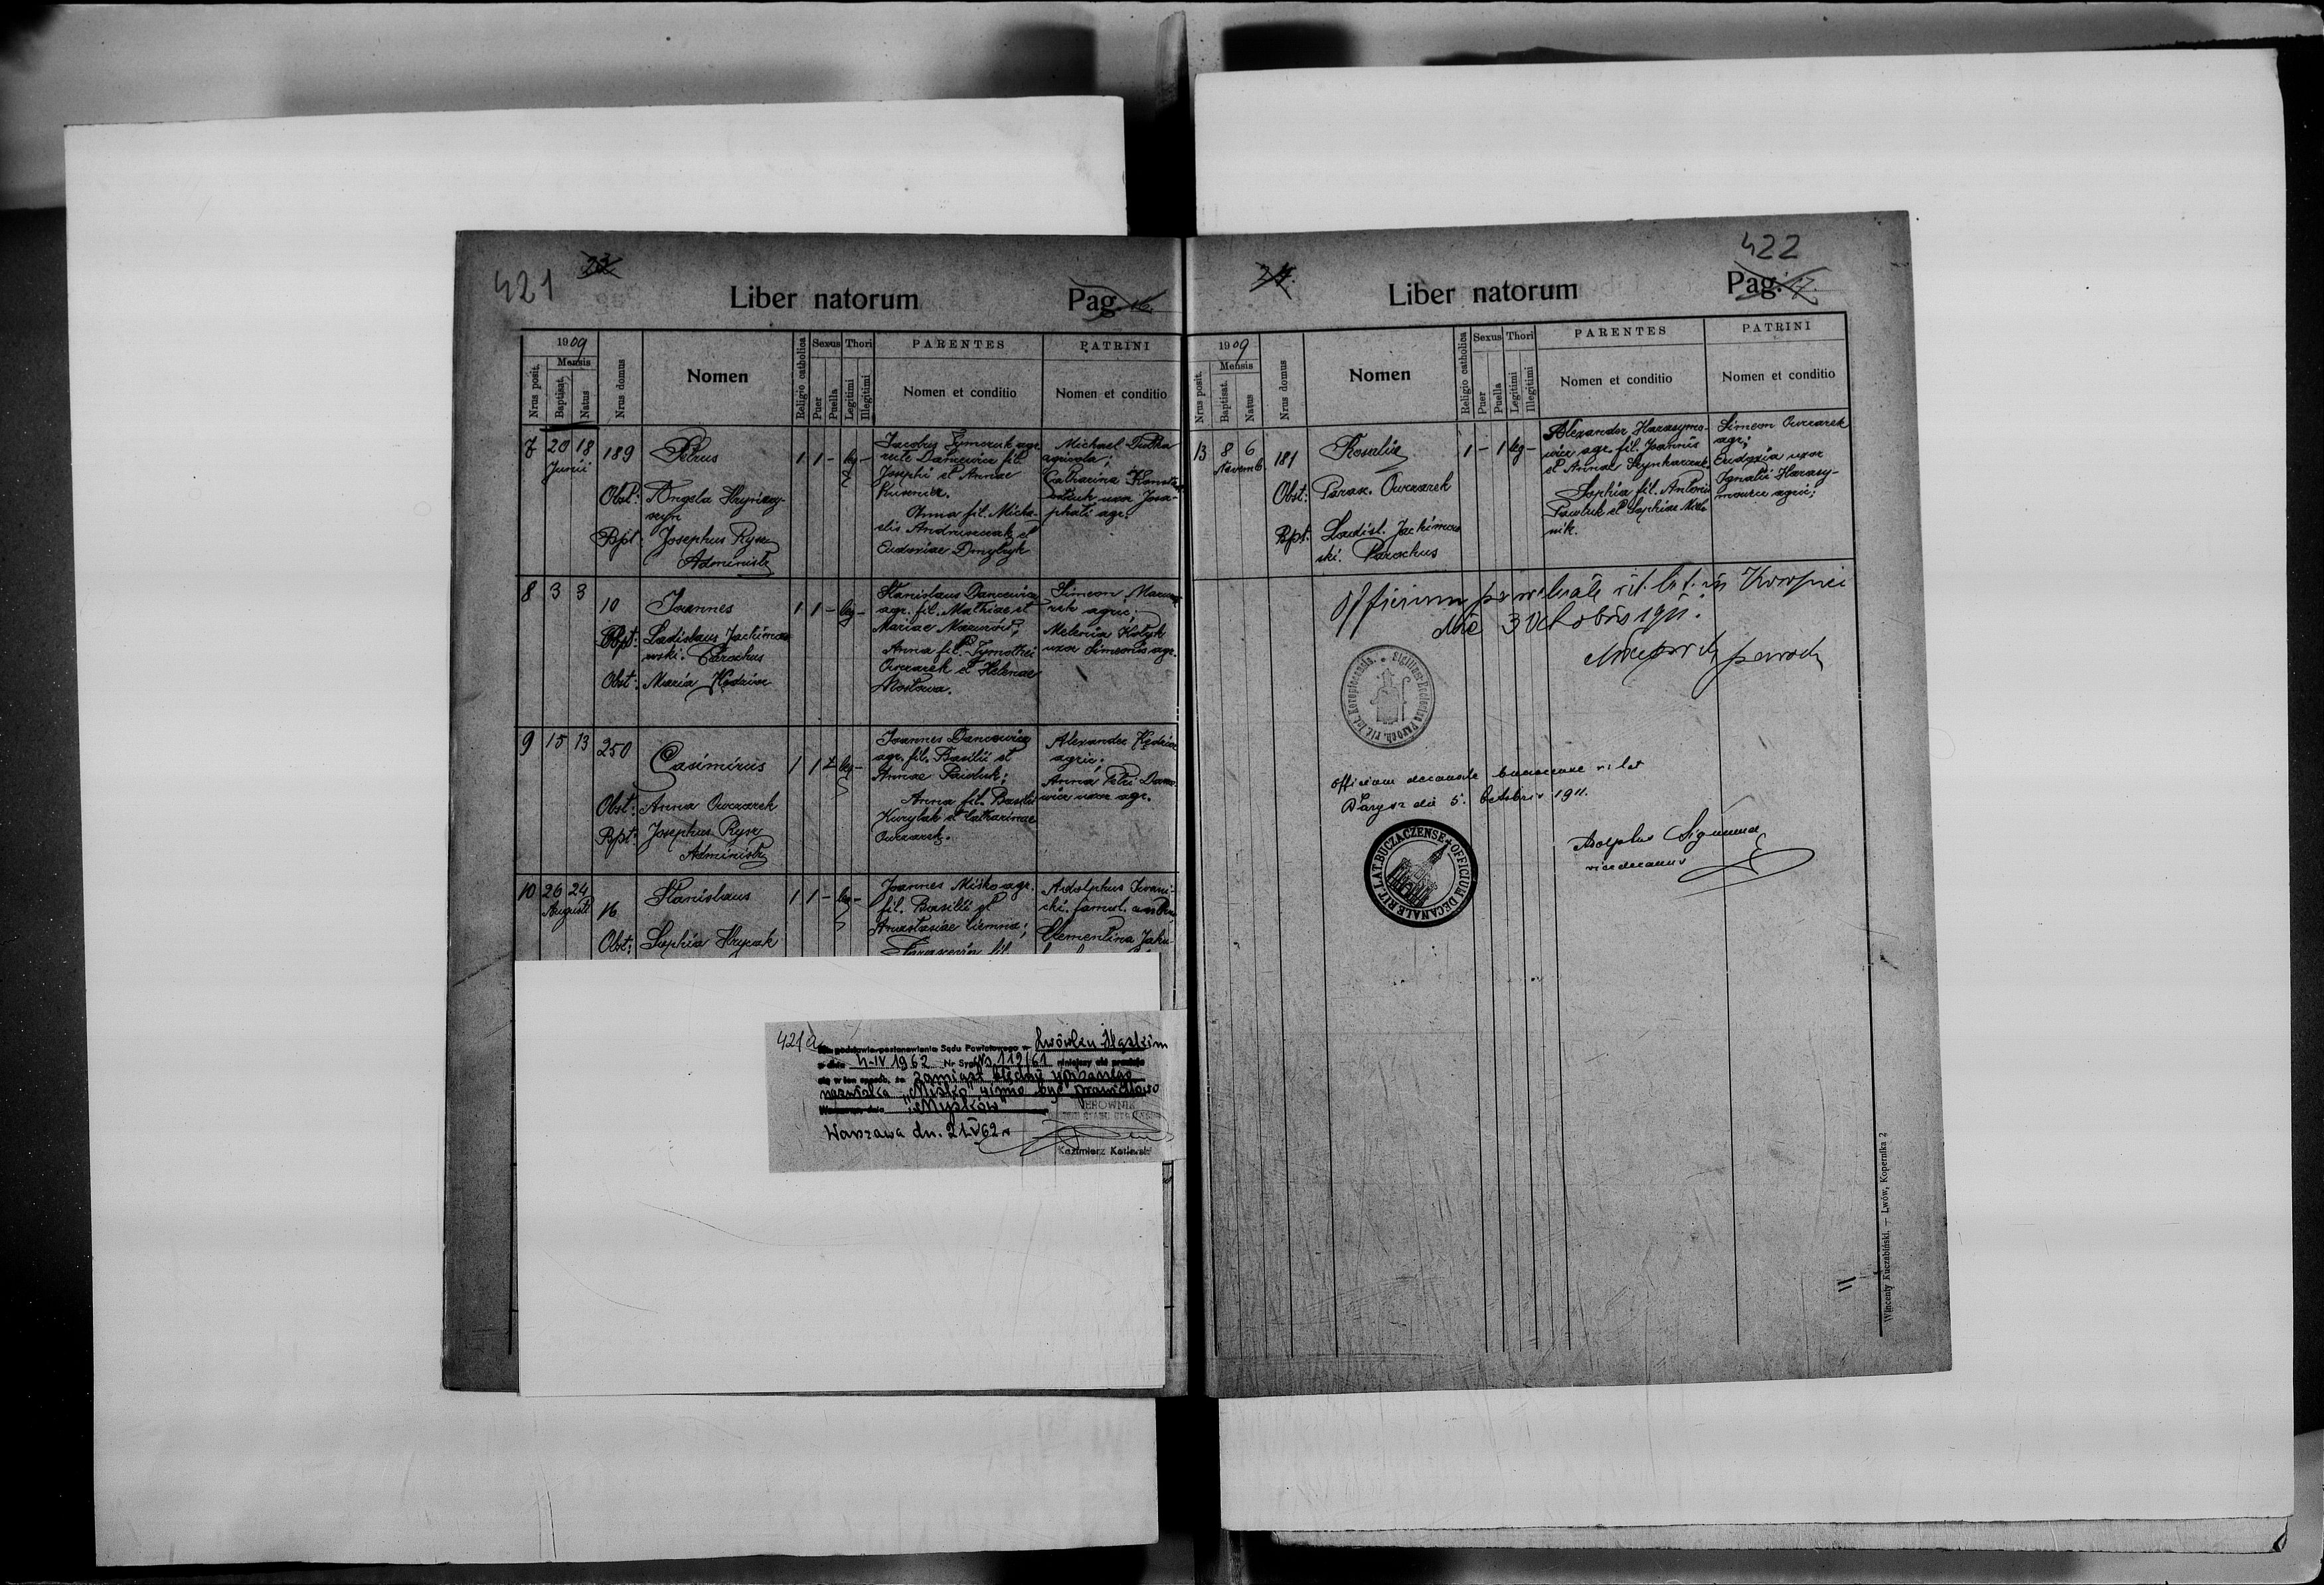 421
23
Liber natorum
Pag. 16.
1909
Mensis
Nrus posit.
Baptisat.
Natus
Nrus domus
Nomen
Religio catholica
Sexus
Puer
Puella
Thori
Legitimi
Illegitimi
PARENTES
Nomen et conditio
PATRINI
Nomen et conditio
7 20 18 189 Petrus 1 1 - leg -
Junii
Obst: Angela
Bpt. Josephus Rysz
Administr
Jacobus Symczuk agr.
recte Dancewicz fil.
Josephi et Annae
Anna fil. Micha-
elis Andruszczak et
Eudoxiae Dmytryk
Michael Dutka
agricola;
Catharina
uxor Josa-
phati agr.
8 3 3 10 Joannes 1 1 - leg -
Bpt: Ladislaus Jachimow
wski. Parochus
Obst: Maria Kędzior
Stanislaus Dancewicz
agr. fil. Mathiae et
Mariae
Anna fil. Tymothei
Owczarek et Helenae
Mostowa.
Simeon
agric.
Melania Kotyk
uxor Simeonis agr.
9 15 13 250 Casimirus 1 1 - leg -
Obst: Anna Owczarek
Bpt: Josephus Rysz
Administr
Joannes Dancewicz
agr. fil. Basilii et
Annae Pawluk;
Anna fil. Basilii
Kurylak et Catharinae
Owczarek.
Alexander Kędzior
agric;
Anna Petri Dance
wicz uxor agr.
10 26 24 16 Stanislaus 1 1 - leg -
Augusti
Obst: Sophia Hrycak
Joannes Miśko agr.
fil. Basilii et
Anastasiae Ciemna;
Parascevia fil.
Adolphus Iwani-
cki. famul.
Clementina Jaku
421a
Na podstawie postanowienia Sądu Powiatowego w Lwówku Śląskim
z dnia 4-IV 1962 Nr Spr. Ns 119/61 niniejszy akt prostuje
się w ten sposób, że zamiast błędnie wpisanego
nazwiska "Miśko" winno być prawidłowo
"Myśków"
KIEROWNIK
Warszawa dn. 21.V 62 r
Kazimierz
422
24.
Liber natorum
Pag. 17.
1909
Mensis
Nrus posit.
Baptisat.
Natus
Nrus domus
Nomen
Religio catholica
Sexus
Puer
Puella
Thori
Legitimi
Illegitimi
PARENTES
Nomen et conditio
PATRINI
Nomen et conditio
13 8 6 181 Rosalia 1 - 1 leg -
Novemb.
Obst: Parax. Owczarek
Bpt: Ladisl. Jachimow
ski. Parochus
Alexander Harasymo-
wicz agr. fil. Joannis
et Annae
Sophia fil. Antonii
Pawluk et Sophiae Miel
nik.
Simeon Owczarek
agr;
Eudoxia uxor
Ignatii Harasy-
mowicz agric;
Officium parochiale rit. lat. in Koropiec
die 3 Octobris 1911.
paroch
Sigillum Ecclesiae Paroch. rit. lat. Koropiecensis.
Officium decanale buczaczense rit lat
Barysz die 5. Octobris 1911.
Adolphus
vicedecanus
OFFICIUM DECANALE RIT. LAT. BUCZACZENSE
Wincenty Kuczabiński. — Lwów, Kopernika 2